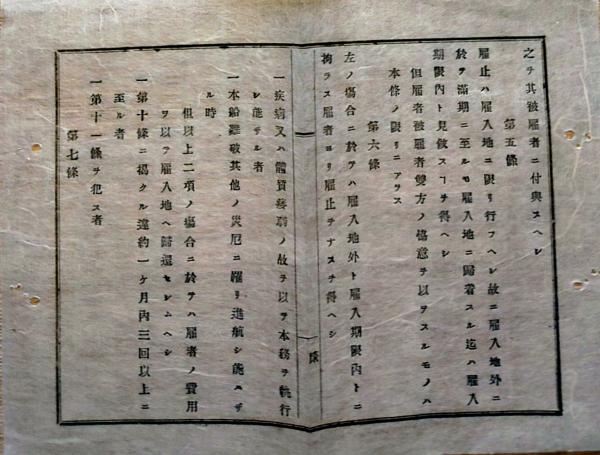 之ヲ其被雇者ニ付與スヘシ
第五條
雇止ハ雇入地ニ限リ行フヘシ故ニ雇入地外ニ
於ヲ滿期ニ至ルモ雇入地ニ歸着スル迄ハ雇入
期限內ト見做スヿヲ得ヘシ
但雇者被雇者雙方ノ協意ヲ以ヲスルモノハ
本條ノ限リニアラス
第六條
左ノ塲合ニ於ヲハ雇入地外ト雇入期限內トニ
拘ラス雇者ヨリ雇止ヲナスヲ得ヘシ
一疾病又ハ體質 ノ故ヲ以ヲ本務ヲ執行
シ能ハサル者
一本船難破其他ノ災厄ニ罹リ進航シ能ハサ
ル時
但以上二項ノ塲合ニ於ヲハ雇者ノ費用
ヲ以ヲ雇入地ヘ歸還セシムヘシ
一第十條ニ揭クル違約一ケ月內三回以上ニ
至ル者
一第十一條ヲ犯ス者
第七條